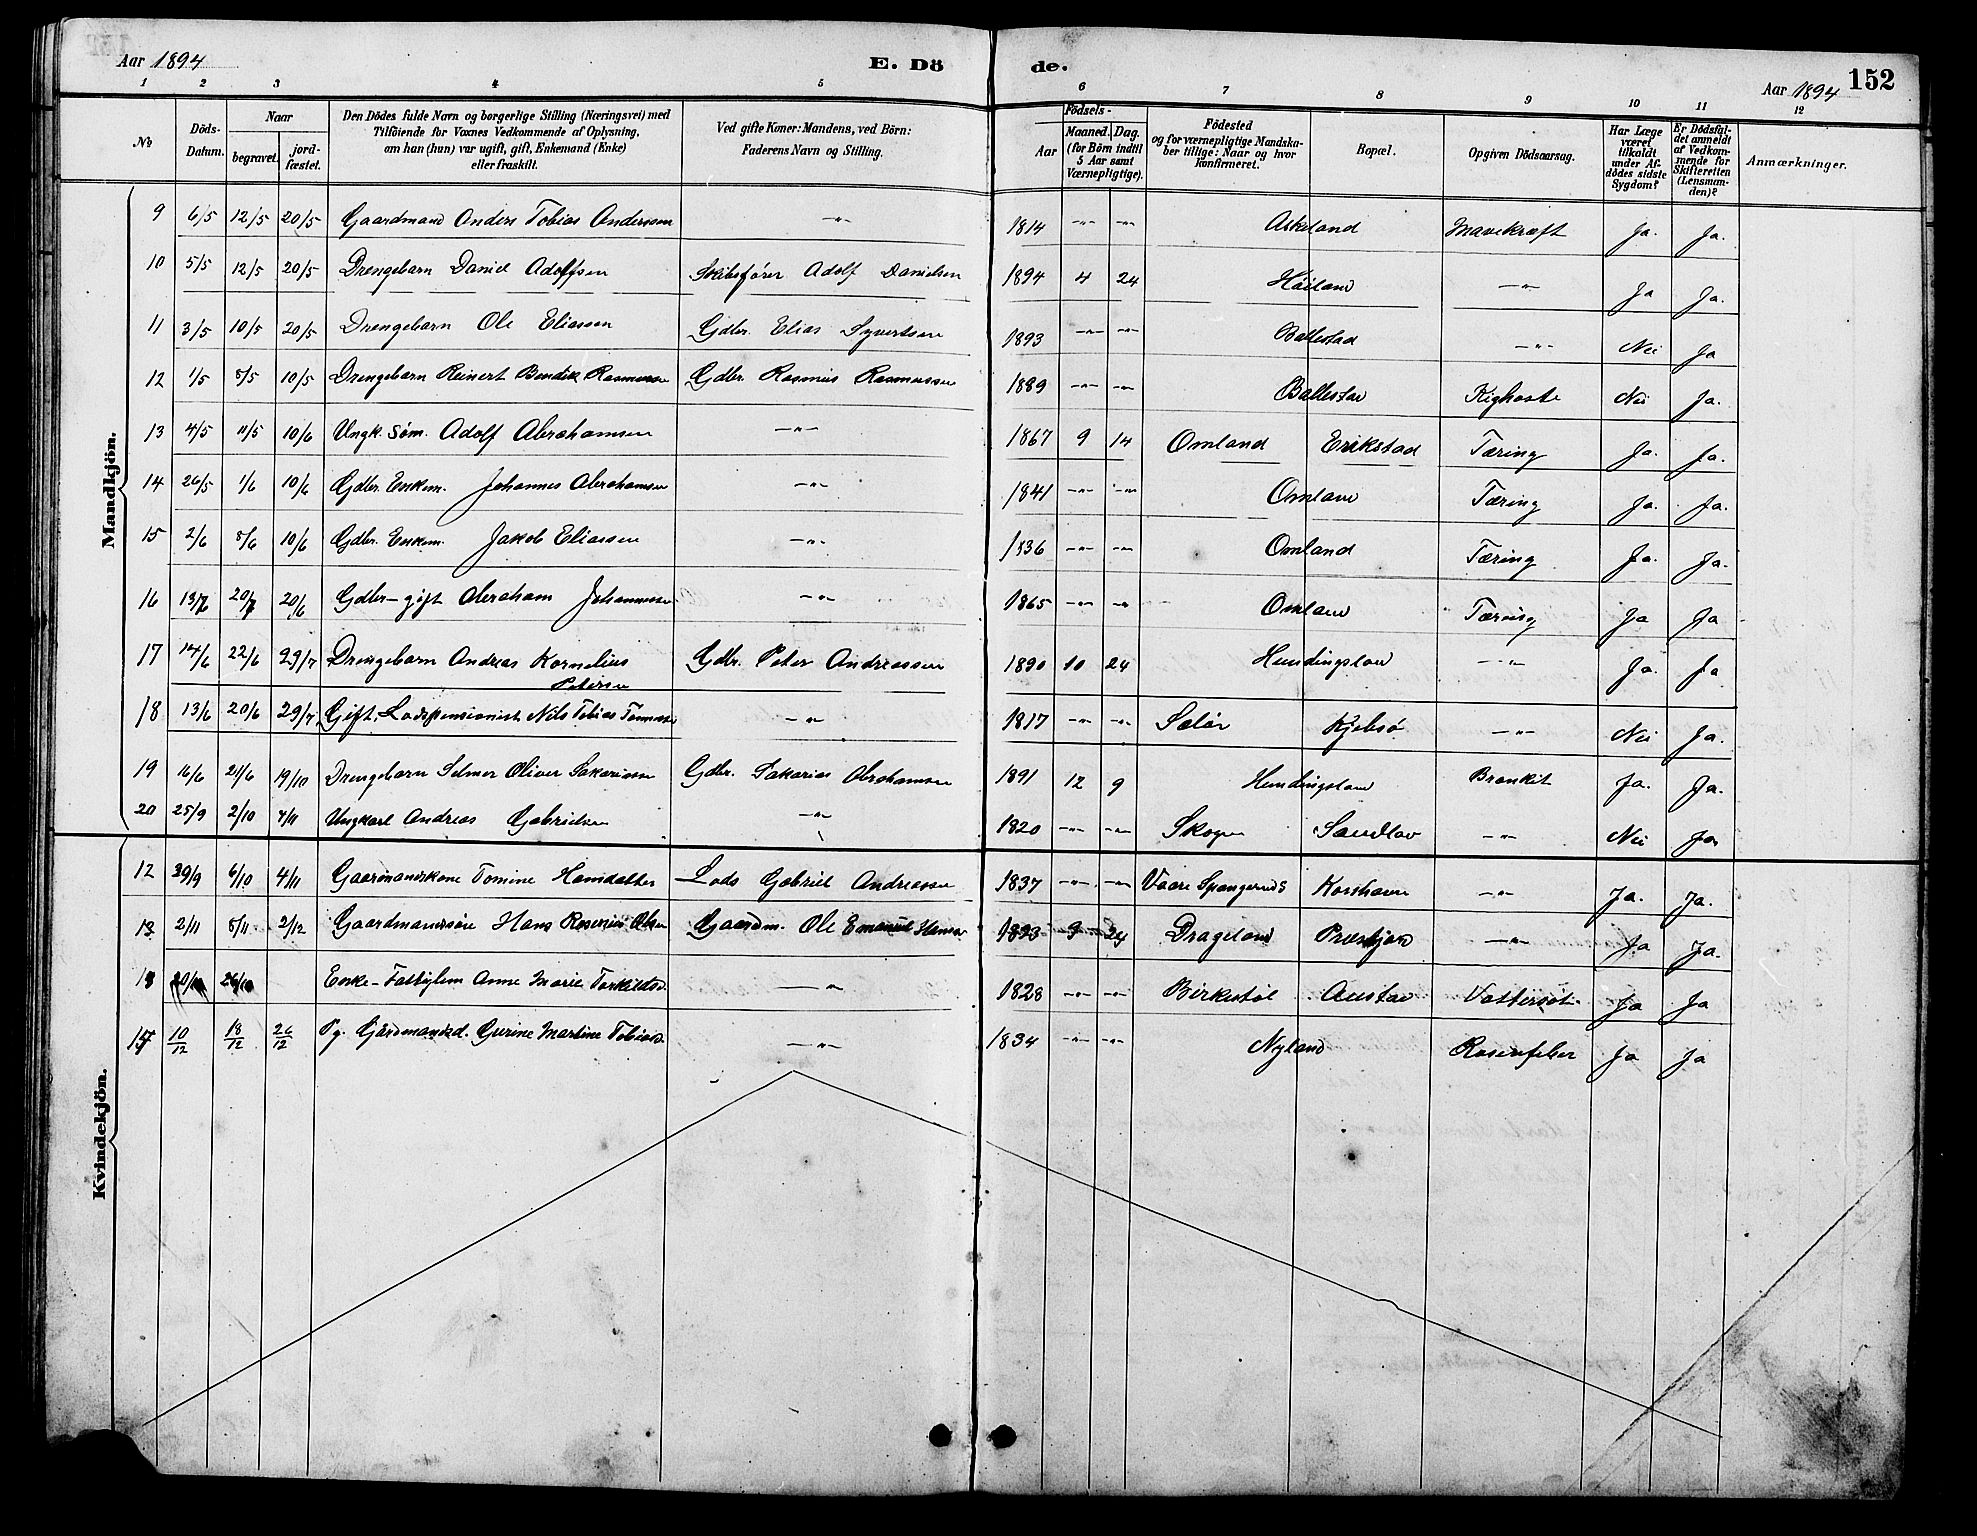 Aar 1894 E. Dö de. Aar 1894 152
1 2 3 4 5 6 7 8 9 10 11 12
No
Döds-Datum.
Naar
begravet. jord-fæstet.
Den Dödes fulde Navn og borgerlige Stilling (Næringsvei) med
Tilföiende for Voxnes Vedkommende af Oplysning,
om han (hun) var ugift, gift, Enkemand (Enke)
eller fraskilt.
Ved gifte Koner: Mandens, ved Börn:
Faderens Navn og Stilling.
Födsels-
Aar Maaned. Dag.
(for Börn indtil
5 Aar samt
Værnepligtige).
Födested
og for værnepligtige Mandska-
ber tillige: Naar og hvor
konfirmeret.
Bopæl.
Opgiven Dödsaarsag.
Har Læge
været
tilkaldt
under Af-
dödes sidste
Sygdom?
Er Dödsfal-
det anmeldt
af Vedkom-
mende for
Skifteretten
(Lensman-
den)?
Anmærkninger.
Mandkjön.
9 6/5 12/5 20/5 Gaardmand Anders Tobias Anderssen -"- 1814 -"- -"- Askeland Mavekræft Ja. Ja.
10 5/5 12/5 20/5 Drengebarn Daniel Adolfsen Skibsfører Adolf Danielsen 1894 4 24 Høiland -"- Ja Ja.
11 3/5 10/5 20/5 Drengebarn Ole Eliassen Gdbr. Elias Syvertsen 1893 -"- -"- Ballestad -"- Nei Ja
12 1/5 8/5 10/5 Drengebarn Reinert Bendik Rasmussen Gdbr. Rasmus Rasmussen 1889 -"- -"- Ballestad Kighoste Nei Ja.
13 4/5 11/5 10/6 Ungk. Søm. Adolf Abrahamsen -"- 1867 9 14 Omland Erikstad Tæring Ja. Ja.
14 26/5 1/6 10/6 Gdbr. Enkem. Johannes Abrahamsen -"- 1841 -"- -"- Omland Tæring Ja. Ja.
15 2/6 8/6 10/6 Gdbr. Enkem. Jakob Eliassen -"- 1836 -"- -"- Omland Tæring Ja. Ja.
16 20/6 Gdbr- gift Abraham Johannessen -"- 1865 -"- -"- Omland Tæring Ja Ja
17 14/6 22/6 29/7 Drengebarn Andreas Kornelius Gdbr. Peter Andreassen 1890 10 24 -"- Ja. Ja
Petersen
18 13/6 20/6 29/7 Gift. Lodspensionist Nils Tobias -"- 1817 -"- -"- Selør Kjebsø -"- Nei Ja.
19 16/6 21/6 19/10 Drengebarn Selmer Oliver Sakariassen Gdbr. Sakarias Abrahamsen 1891 12 9 Bronkit Ja. Ja.
20 25/9 2/10 4/11 Ungkarl Andreas Gabrielsen -"- 1820 -"- -"- Skogen -"- Nei Ja
Kvindekjön.
12 29/9 6/10 4/11 Gaarmandskone Tomine Hansdatter Lods Gabriel Andreassen 1837 -"- -"- Vaare Spangereids Korshavn -"- Ja. Ja.
13 2/11 8/11 2/12 Gaardmandssøn Hans Olsen Gaardm. Ole Emanuel Hansen 1893 9 24 Drageland -"- Ja Ja.
Enke- Fattiglem Anne Marie Torkildsd. -"- 1828 -"- -"- Birkestøl Austad Vattersot Ja Ja
10/12 18/12 26/12 Pg. Gårdmandsd. Gurine Martine Tobiasd. -"- 1834 -"- -"- Nyland Rosenfeber Ja Ja